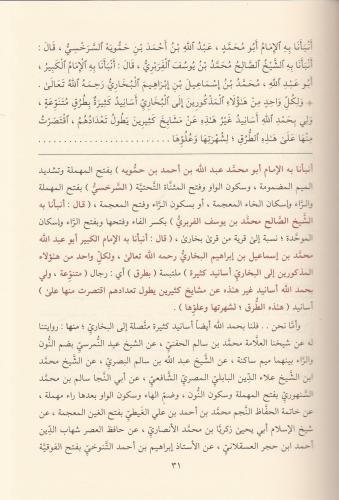 أَنْبَأَنَا بِهِ الْإِمَامُ أَبُو مُحَمَّدٍ ، عَبْدُ اللهِ بْنُ أَحْمَدَ بْنِ حَمُّويَهِ السَّرَخْسِيُّ ، قَالَ :
أَنْبَأَنَا بِهِ الشَّيْخُ الصَّالِحُ مُحَمَّدُ بْنُ يُوسُفَ الْفَِرَبْرِيُّ ، قَالَ : أَنْبَأَنَا بِهِ الْإِمَامُ الْكَبِيرُ ،
أَبُو عَبْدِ اللهِ ، مُحَمَّدُ بْنُ إِسْمَاعِيلَ بْنِ إِبْرَاهِيمَ الْبُخَارِيُّ رَحِمَهُ اللهُ تَعَالَى .
* وَلِكُلِّ وَاحِدٍ مِنْ هَؤُلَاءِ الْمَذْكُورِينَ إِلَى الْبُخَارِيِّ أَسَانِيدُ كَثِيرَةٌ بِطُرُقٍ مُتَنَوِّعَةٍ ،
وَلِي بِحَمْدِ اللهِ أَسَانِيدُ غَيْرُ هَذِهِ عَنْ مَشَايِخَ كَثِيرِينَ يَطُولُ تَعْدَادُهُمْ ، اقْتَصَرْتُ
مِنْهَا عَلَى هَذِهِ الطُّرُقِ ؛ لِشُهْرَتِهَا وَعُلُوِّهَا .
أنبأنا به الإمام أبو محمَّد عبد الله بن أحمد بن حمُّويه ) بفتح المهملة وتشديد
الميم المضمومة ، وسكون الواو وفتح المثنَّاة التَّحتيَّة ( السَّرخسيُّ ) بفتح المهملة
والرَّاء وإسكان الخاء المعجمة ، أو بسكون الرَّاء وفتح المعجمة ، ( قال : أنبأنا به
الشَّيخ الصَّالح محمَّد بن يوسف الفربريُّ ) بكسر الفاء وفتحها وبفتح الرَّاء وإسكان
الموحَّدة ؛ نسبة إلى قرية من قرىٰ بخارىٰ ، ( قال : أنبأنا به الإمام الكبير أبو عبد الله
محمَّد بن إسماعيل بن إبراهيم البخاريُّ رحمه الله تعالىٰ ، ولكلِّ واحد من هٰؤلاء
المذكورين إلى البخاريِّ أسانيد كثيرة ) ملتبسة ( بطرق ) أي : رجال ( متنوِّعة ، ولي
بحمد الله أسانيد غير هٰذه عن مشايخ كثيرين يطول تعدادهم اقتصرت منها علىٰ )
أسانيد ( هٰذه الطُّرق ؛ لشهرتها وعلوِّها ) .
وأمَّا نحن . . فلنا بحمد الله أيضاً أسانيد كثيرة متَّصلة إلى البخاريِّ ؛ منها : روايتنا
له عن شيخنا العلَّامة محمَّد بن سالم الحفنيِّ ، عن الشَّيخ عيد النُّمرسيِّ بضم النُّون
والرَّاء بينهما ميم ساكنة ، عن الشَّيخ عبد الله بن سالم البصريِّ ، عن الشَّيخ محمَّد
ابن الشَّيخ علاء الدِّين البابليِّ المصريِّ الشَّافعيِّ ، عن أبي النَّجا سالم بن محمَّد
السَّنهوريِّ بفتح المهملة وسكون النُّون ، وضم الهاء وسكون الواو بعدها راء مهملة ،
عن خاتمة الحفَّاظ النَّجم محمَّد بن أحمد بن علي الغيطيِّ بفتح الغين المعجمة ، عن
شيخ الإسلام أبي يحيىٰ زكريَّا بن محمَّد الأنصاريِّ ، عن حافظ العصر شهاب الدِّين
أحمد ابن حجر العسقلانيِّ ، عن الأستاذ إبراهيم بن أحمد التَّنوخيِّ بفتح الفوقيَّة
٣١